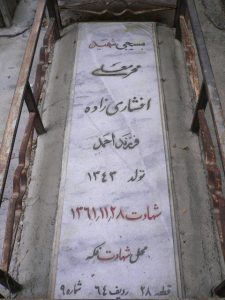 بسیجی شهید
محمد علی
افشاری زاده
فرزند احمد
تولد ۱۳۴۳
شهادت ۱۳۶۱,۱۱,۲۸
محل شهادت فکه
قطعه ۲۸ ردیف ۶۴ شماره ۹